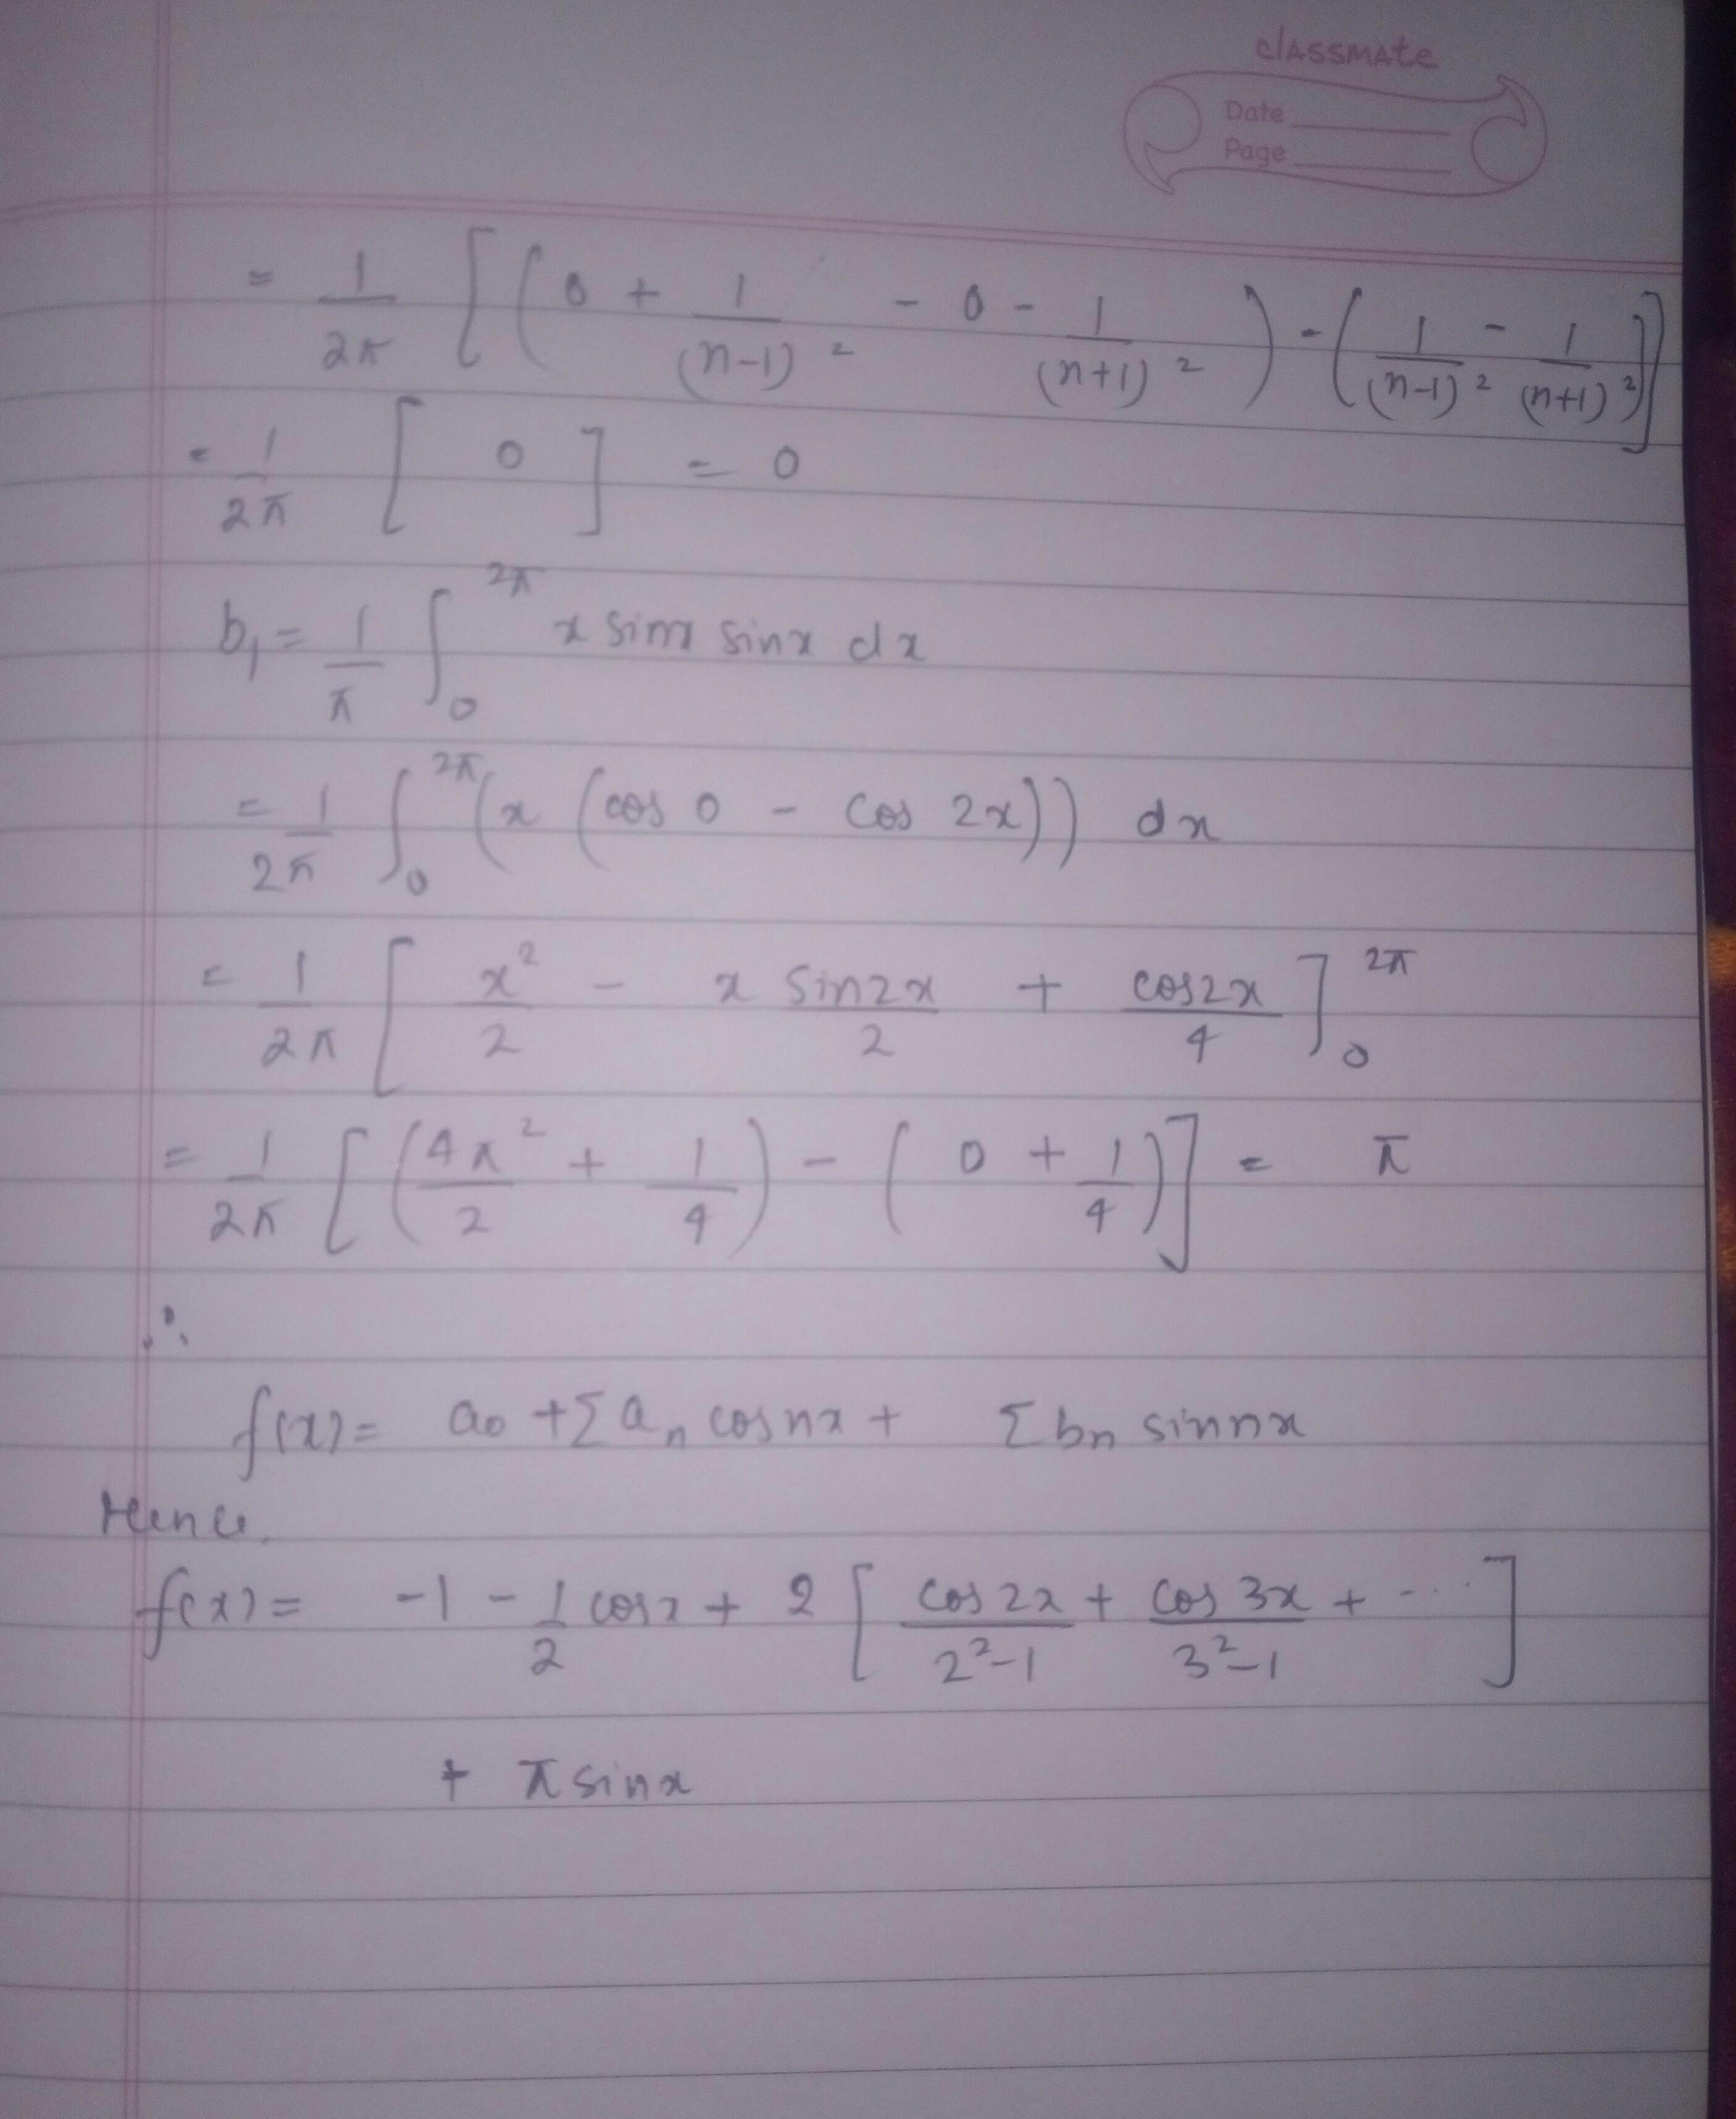 classmate
Date
Page
= 1/2π [(0 + 1/(n-1)² - 0 - 1/(n+1)²) - (1/(n-1)² - 1/(n+1)²)]
= 1/2π [ 0 ] = 0
b₁ = 1/π ∫₀^2π x sinx sinx dx
= 1/2π ∫₀^2π (x (cos 0 - cos 2x)) dx
= 1/2π [ x²/2 - x sin2x/2 + cos2x/4 ]₀^2π
= 1/2π [(4π²/2 + 1/4) - (0 + 1/4)] = π
∴
f(x) = a₀ + Σ aₙ cosnx + Σ bₙ sinnx
Hence
f(x) = -1 - 1/2 cosx + 2 [ cos 2x/2²-1 + cos 3x/3²-1 + ... ]
+ π sinx